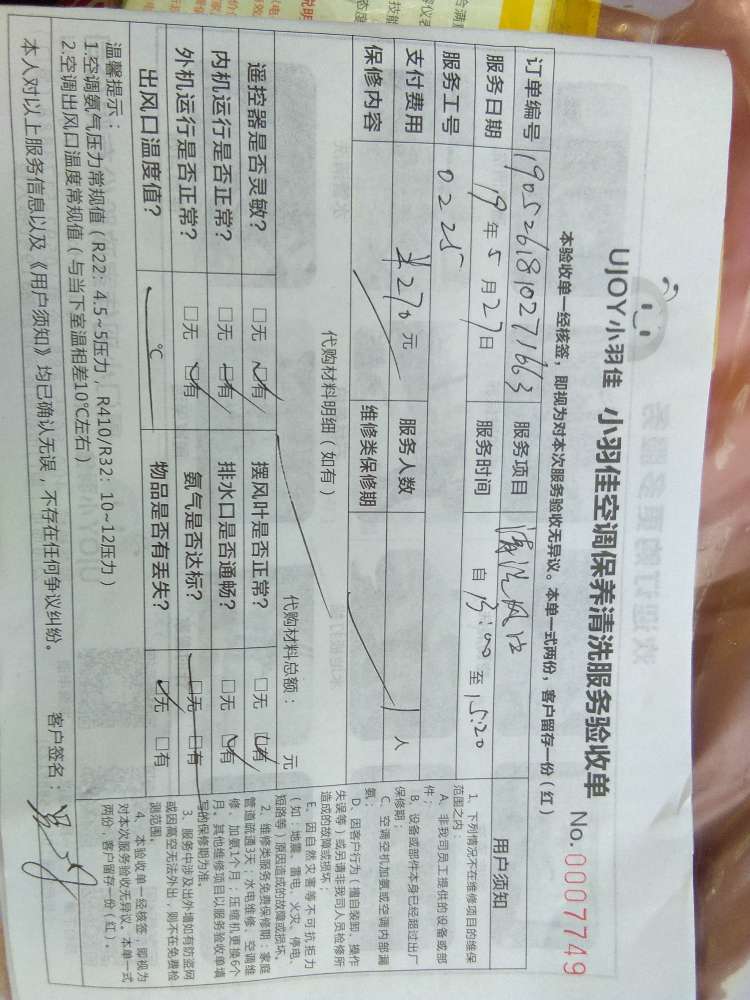 UJOY小羽佳 小羽佳空调保养清洗服务验收单 No.0007749
本验收单一经核签，即视为对本次服务验收无异议。本单一式两份，客户留存一份（红）
订单编号 1905261810271663 服务项目 清洗风口
服务日期 19年5月27日 服务时间 自13:00至15:20
服务工号 0225
支付费用 ¥270元 服务人数 1人
保修内容 维修类保修期
代购材料明细（如有） 代购材料总额： 元
遥控器是否灵敏? □无 □有 摆风叶是否正常? □无 □有
内机运行是否正常? □无 □有 排水口是否通畅? □无 □有
外机运行是否正常? □无 □有 氨气是否达标? □无 □有
出风口温度值? ℃ 物品是否有丢失? □无 □有
温馨提示：
1.空调氨气压力常规值（R22：4.5~5压力，R410/R32：10~12压力）
2.空调出风口温度常规值（与当下室温相差10℃左右）
本人对以上服务信息以及《用户须知》均已确认无误，不存在任何争议纠纷。 客户签名：
用户须知
1、下列情况不在维修项目的维保
范围之内：
A、非我司员工提供的设备或部
件；
B、设备或部件本身已经超过出厂
保修期；
C、空调空机加氨或空调内部漏
氨；
D、因客户行为（擅自装卸、操作
失误等）或另请非我司人员检修所
造成的故障或损坏；
E、因自然灾害等不可抗拒力
（如：地震、雷电、火灾、停电、
短路等）原因造成的故障或损坏。
2、维修类服务免费保修期：家庭
管道疏通3天；水电维修、空调维
修、加氨1个月；压缩机更换6个
月。其他维修项目以服务验收单填
写的保修期为准。
3、服务中涉及出外墙如有防盗网
或因高空无法外出，则不在免费检
测范围。
4、本验收单一经核签，即视为
对本次服务验收无异议。本单一式
两份，客户留存一份（红）。